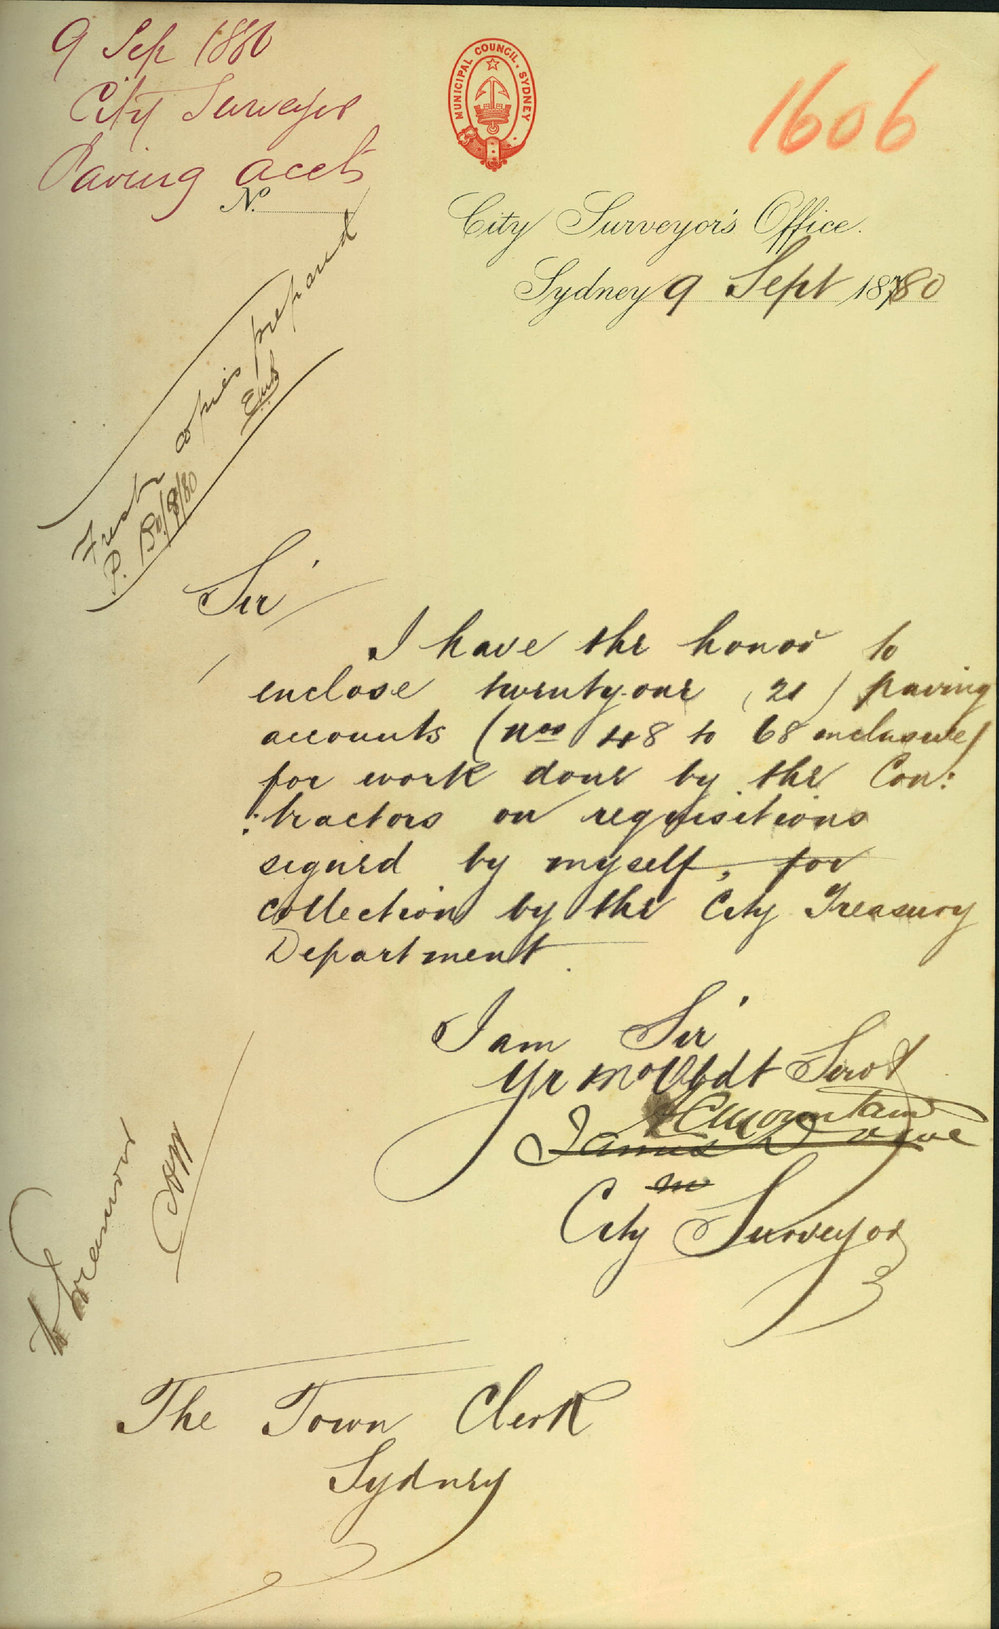 9 Sep 1880
City Surveyor
Paving acct
No.
MUNICIPAL COUNCIL, SYDNEY
1606
City Surveyor's Office.
Sydney 9 Sept 1880
Fresh copies prepared
Sir
I have the honor to
enclose twenty-one (21) paving
accounts (nos 48 to 68 inclusive)
for work done by the Con:
:tractors on requisitions
signed by myself, for
collection by the City Treasury
Department.
I am Sir
Yr Mo Obdt Servt
James
City Surveyor
To Treasurer
The Town Clerk
Sydney